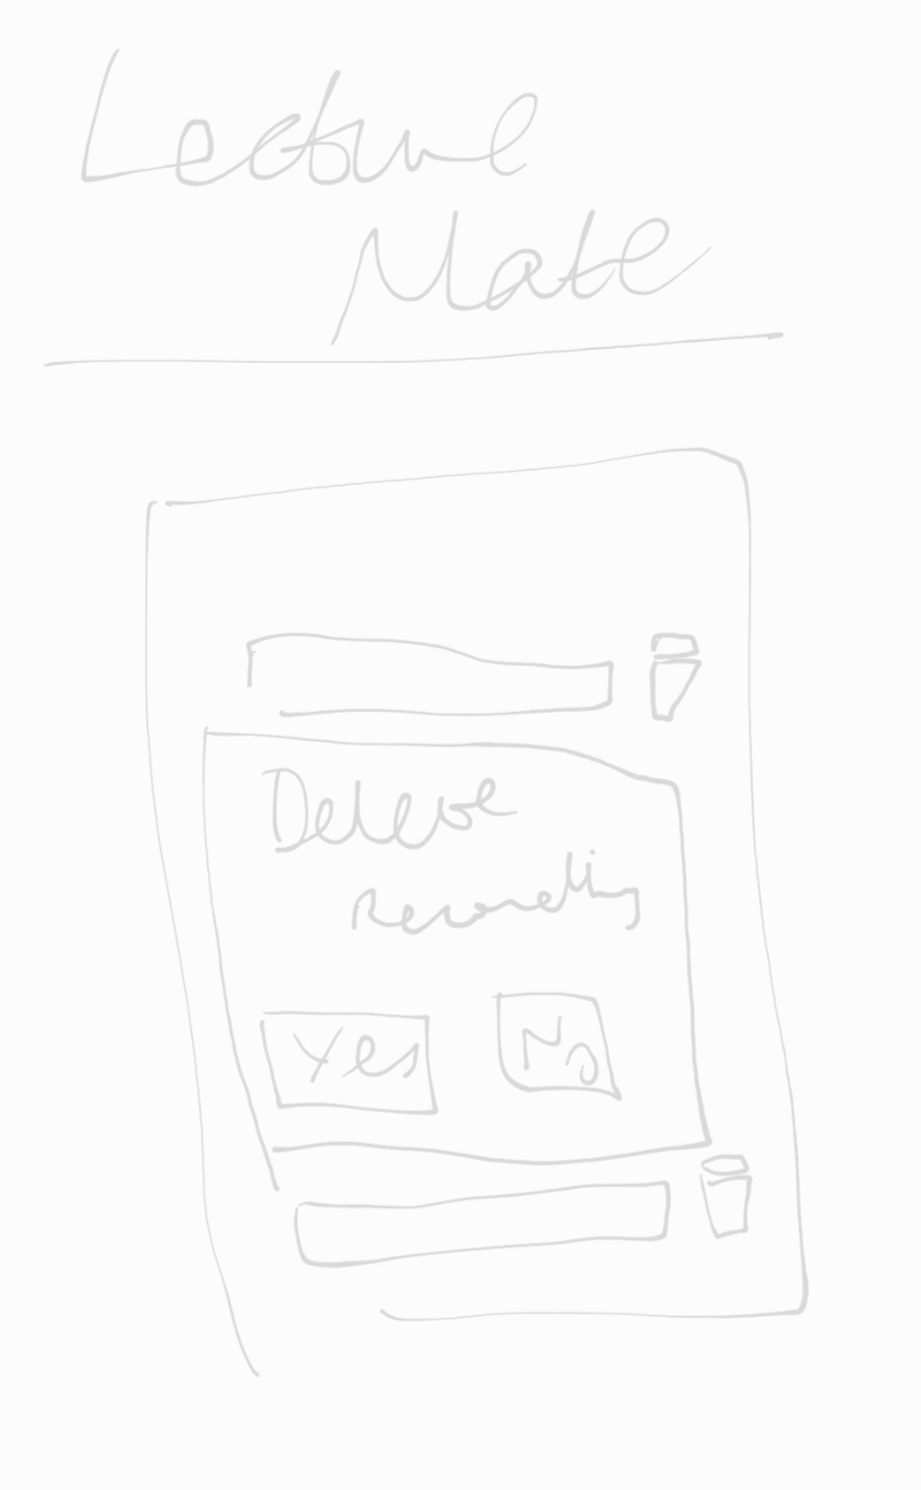 Lecture
Mate
Delete
Recording
Yes
No